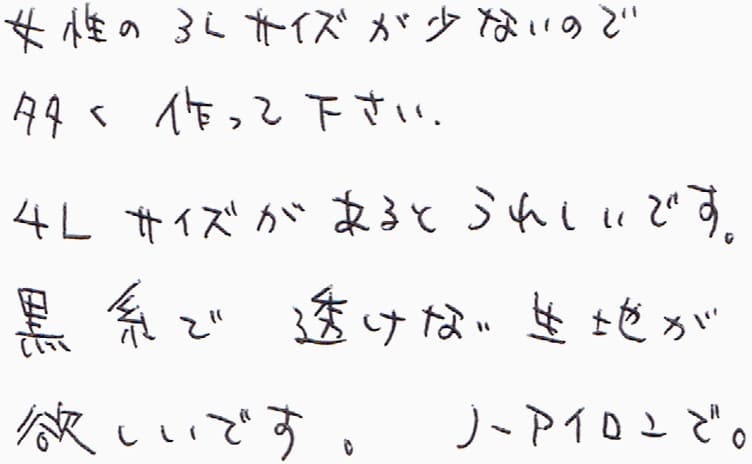 女性の 3Lサイズが少ないので
多く 作って下さい.
4L サイズが あると うれしいです。
黒系で 透けない 生地が
欲しいです。 ノーアイロンで。